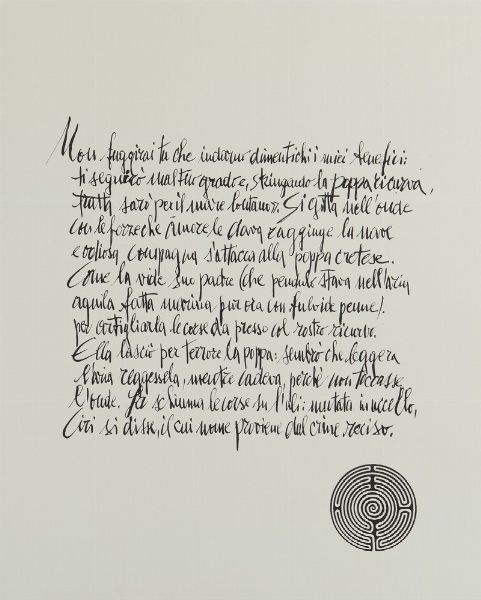 Non fuggirai tu che indarno dimentichi i miei benefici:
ti seguirò mal tuo grado e, stringendo la poppa ricurva,
tratta sarò per il mare lontano. Si gitta nell'onde
con le forze che Amore le dava raggiunge la nave
e odiosa compagna s'attacca alla poppa cretese.
Come la vide suo padre (che pendulo stava nell'aria
aquila fatta marina pur ora con fulvide penne)
per artigliarla le corse da presso col rostro ricurvo.
Ella lasciò per terrore la poppa: sembrò che leggera
l'aria reggessela, mentre cadeva, perché non toccasse
l'onde. piuma le corse su l'ali: mutata in uccello,
Ciri si disse, il cui nome proviene dal crine reciso.